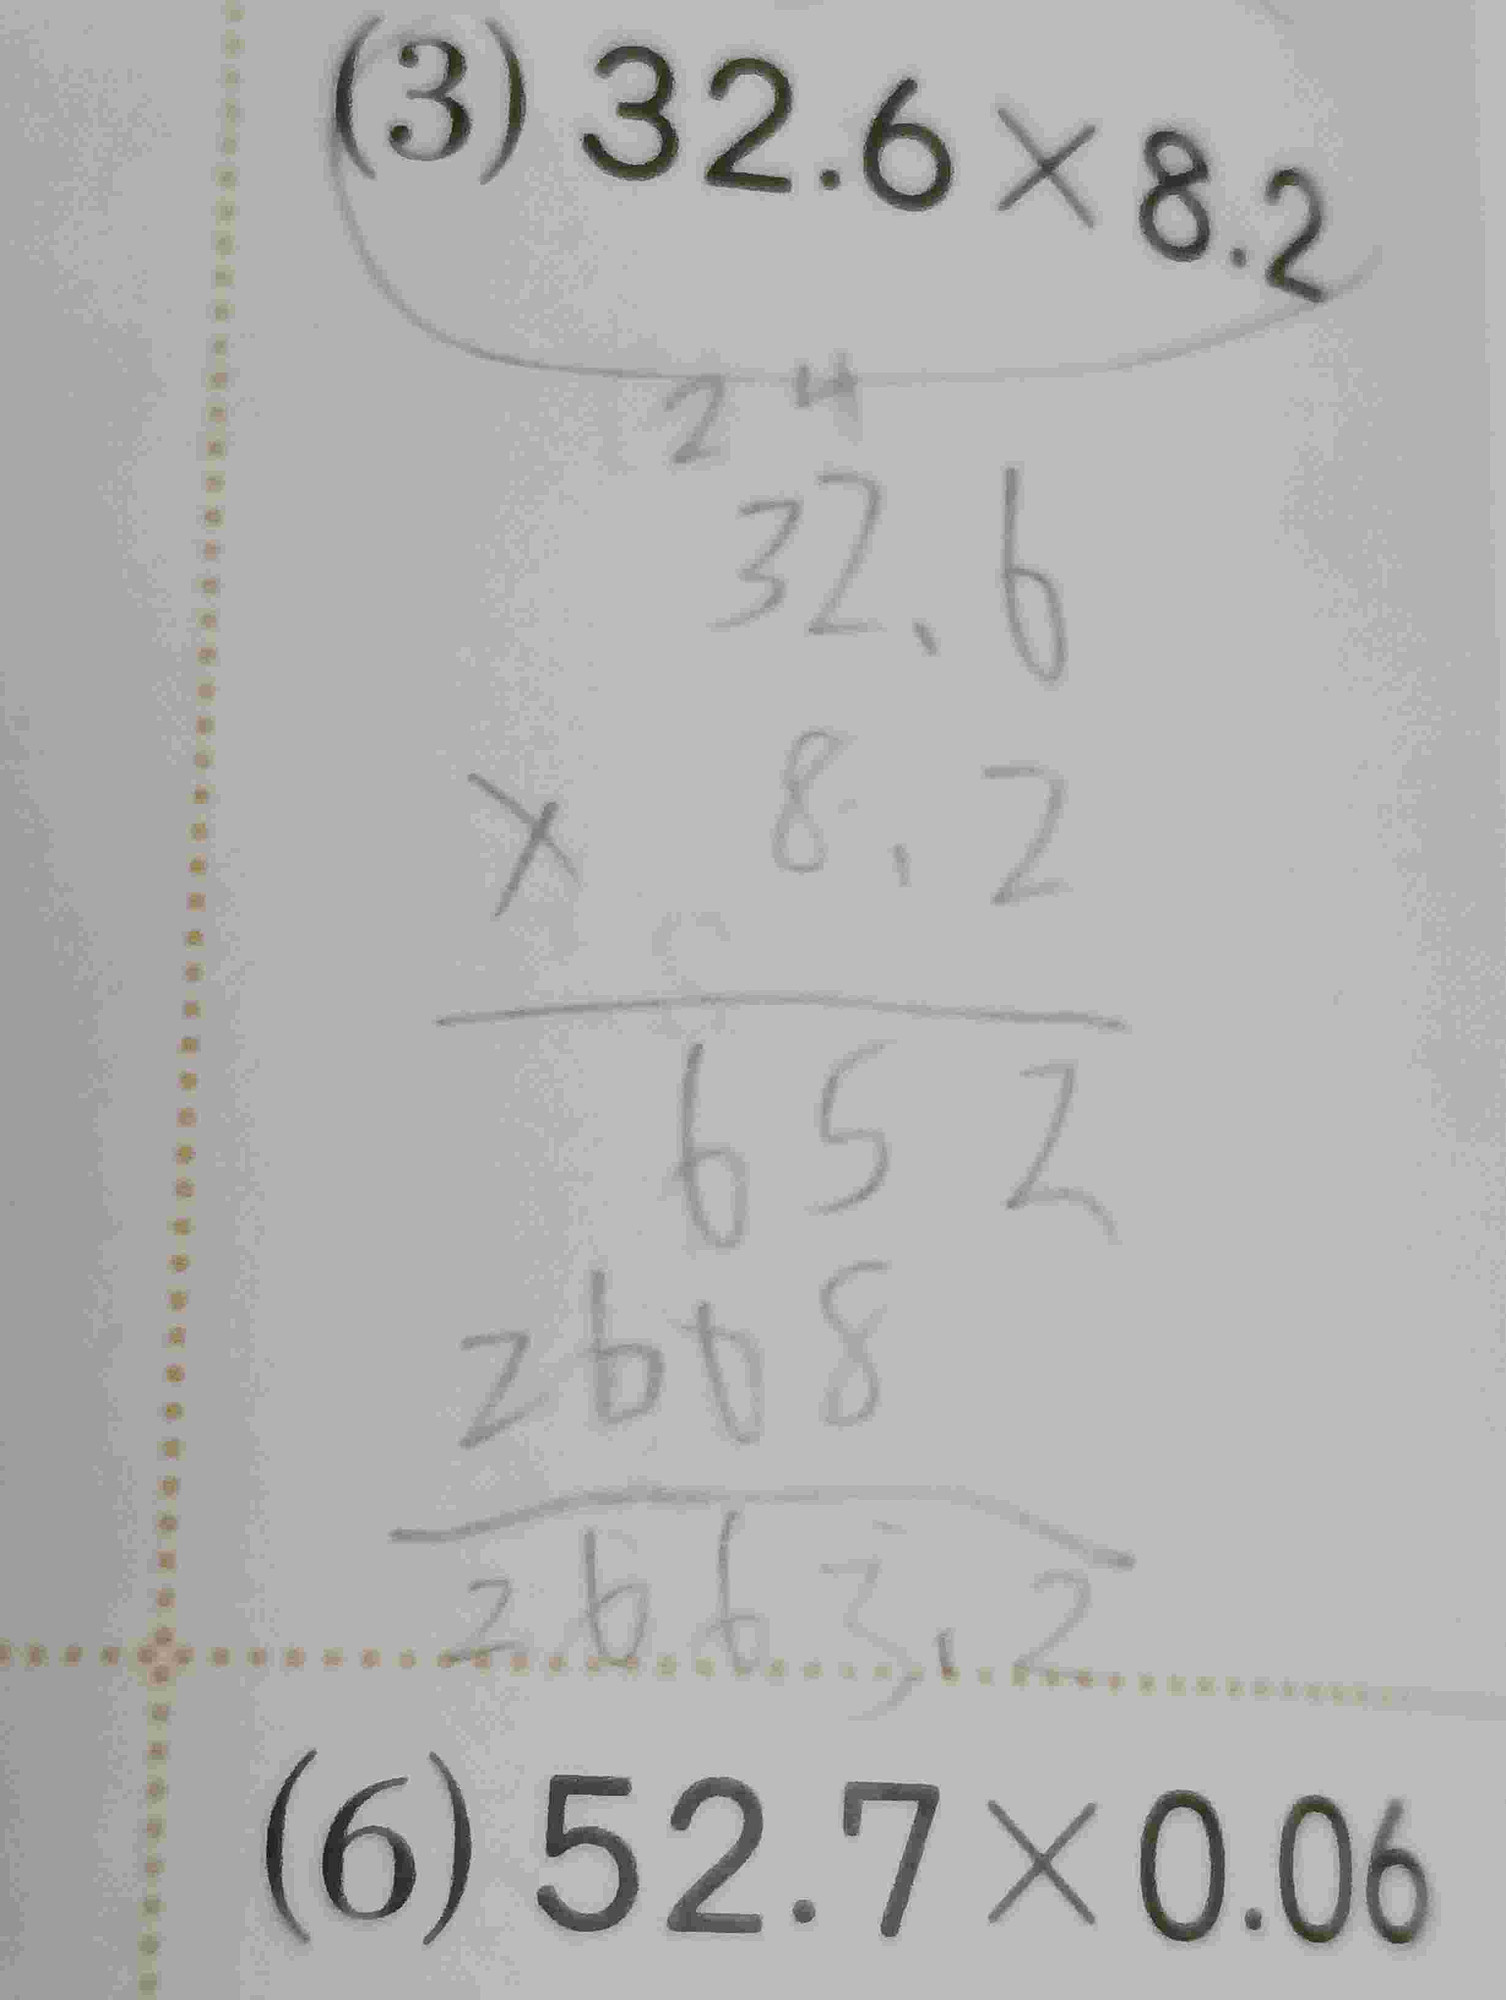 (3) 32.6×8.2
2 4
32.6
× 8.2
652
2608
2663.2
(6) 52.7×0.06